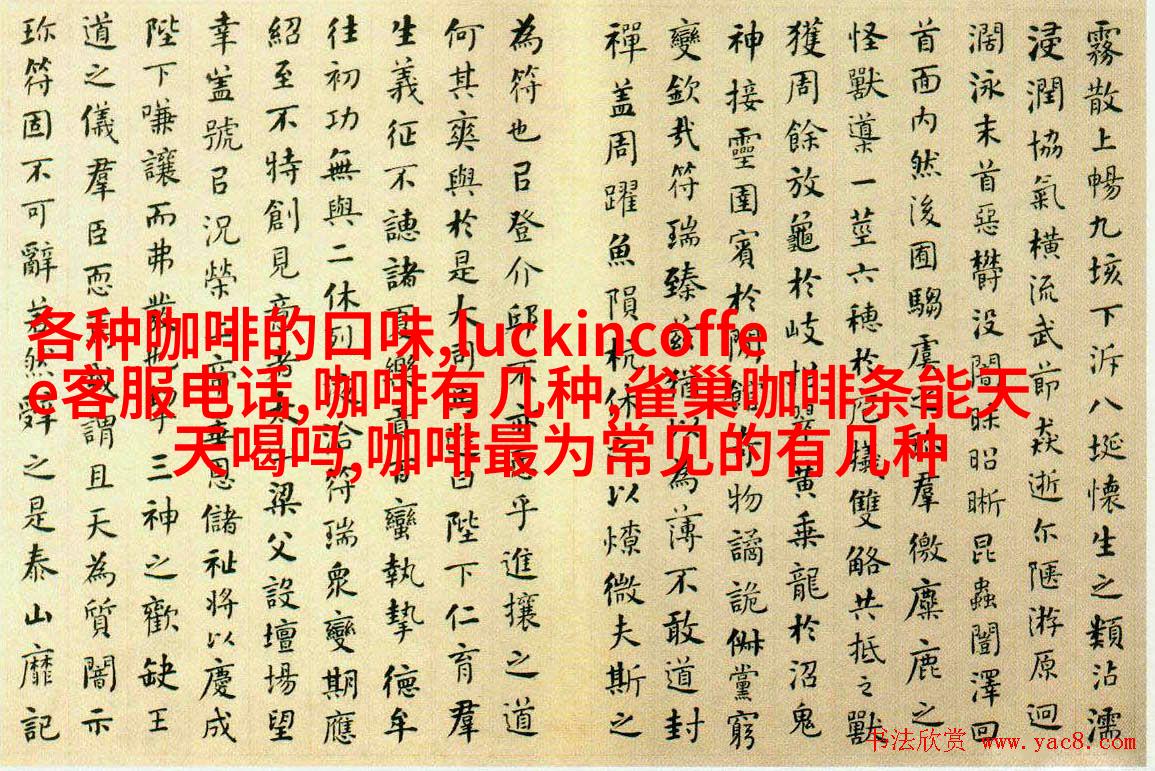 霧散上暢九垓下泝八埏懷生之類沾濡
浸潤協氣橫流武節猋逝尓陿游原迥
濶泳末首惡欝沒闇昧昭晰昆蟲闓澤回
首面內然後囿騶虞之珍羣徼麋鹿之
怪獸導一莖六穗於庖犧雙觡共抵之獸
獲周餘放龜於岐招翠黃乘龍於沼鬼
神接靈圉賓於閒館奇物譎詭俶黨窮
變欽哉符瑞臻茲猶以為薄不敢道封
禪盖周躍魚隕杭休之以燎微夫斯之
為符也㠯登介邱不亦恧乎進攘之道
何其爽與於是大司馬進曰陛下仁育羣
生義征不譓諸夏樂貢百蠻執摯德牟
往初功無與二休列浹洽符瑞衆變期應
紹至不特創見意者泰山梁父設壇場望
幸盖號㠯况榮上帝垂恩儲祉將以慶成
陛下嗛讓而弗發也挈三神之歡缺王
道之儀羣臣恧焉或謂且天為質闇示
珎符固不可辭若然辭之是泰山靡記
各种咖啡的口味,luckincoffe
e客服电话,咖啡有几种,雀巢咖啡条能天
天喝吗,咖啡最为常见的有几种
书法欣赏 www.yac8.com